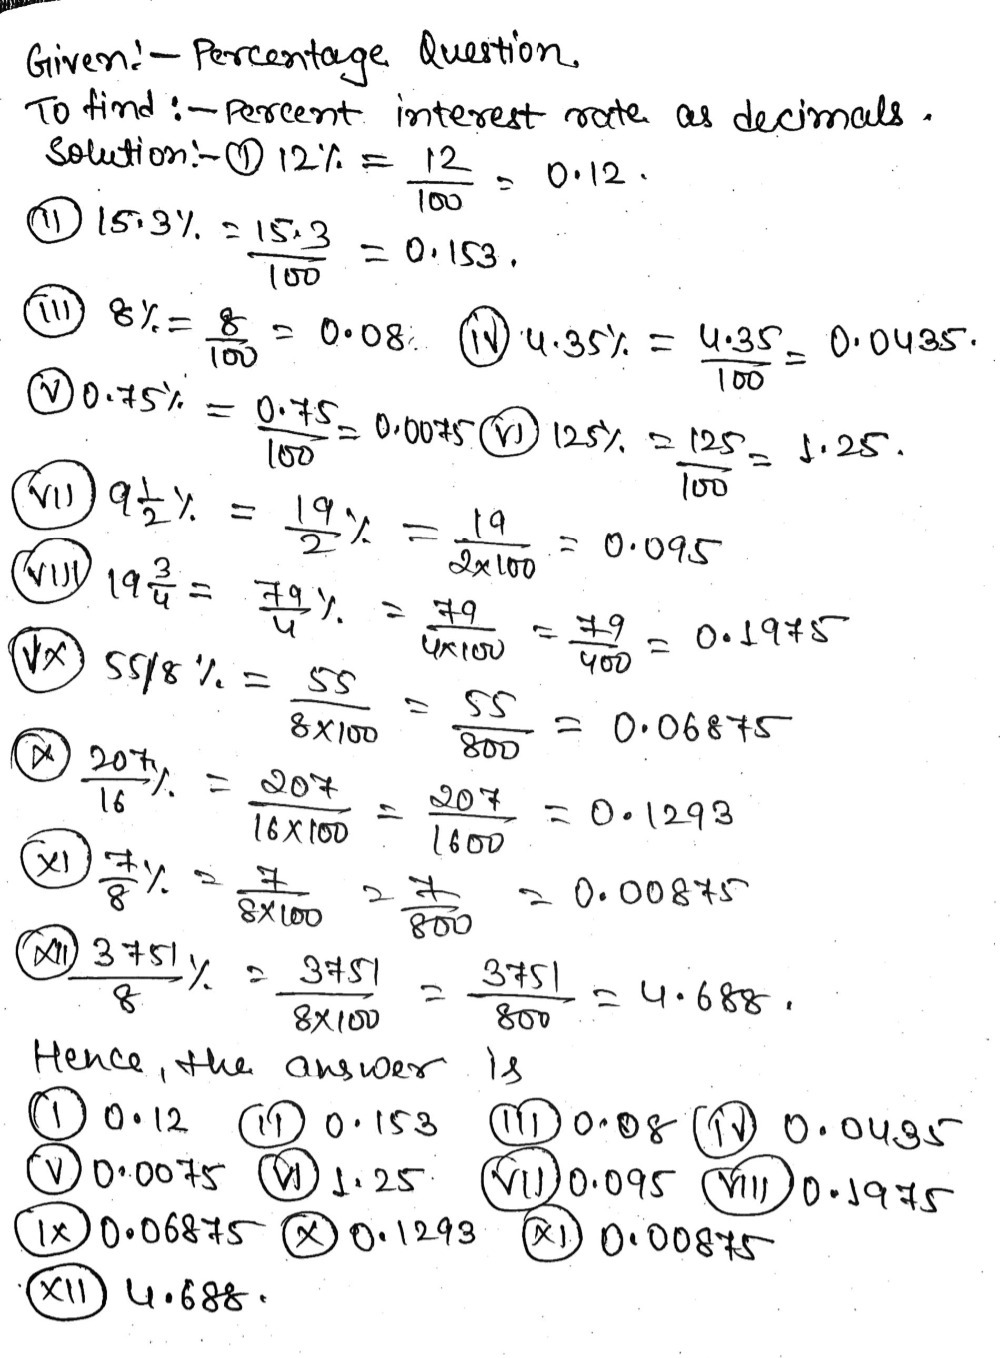 Given:- Percentage Question.
To find :- Percent interest rate as decimals.
Solution:- (I) 12% = 12/100 = 0.12.
(II) 15.3% = 15.3/100 = 0.153.
(III) 8% = 8/100 = 0.08. (IV) 4.35% = 4.35/100 = 0.0435.
(V) 0.75% = 0.75/100 = 0.0075 (VI) 125% = 125/100 = 1.25.
(VII) 9 1/2 % = 19/2 % = 19/2×100 = 0.095
(VIII) 19 3/4 = 79/4 % = 79/4×100 = 79/400 = 0.1975
(VX) 55/8 % = 55/8×100 = 55/800 = 0.06875
(IX) 207/16 % = 207/16×100 = 207/1600 = 0.1293
(XI) 7/8 % = 7/8×100 = 7/800 = 0.00875
(XII) 3751/8 % = 3751/8×100 = 3751/800 = 4.688.
Hence, the answer is
(I) 0.12 (II) 0.153 (III) 0.08 (IV) 0.0435
(V) 0.0075 (VI) 1.25 (VII) 0.095 (VIII) 0.1975
(IX) 0.06875 (X) 0.1293 (XI) 0.00875
(XII) 4.688.